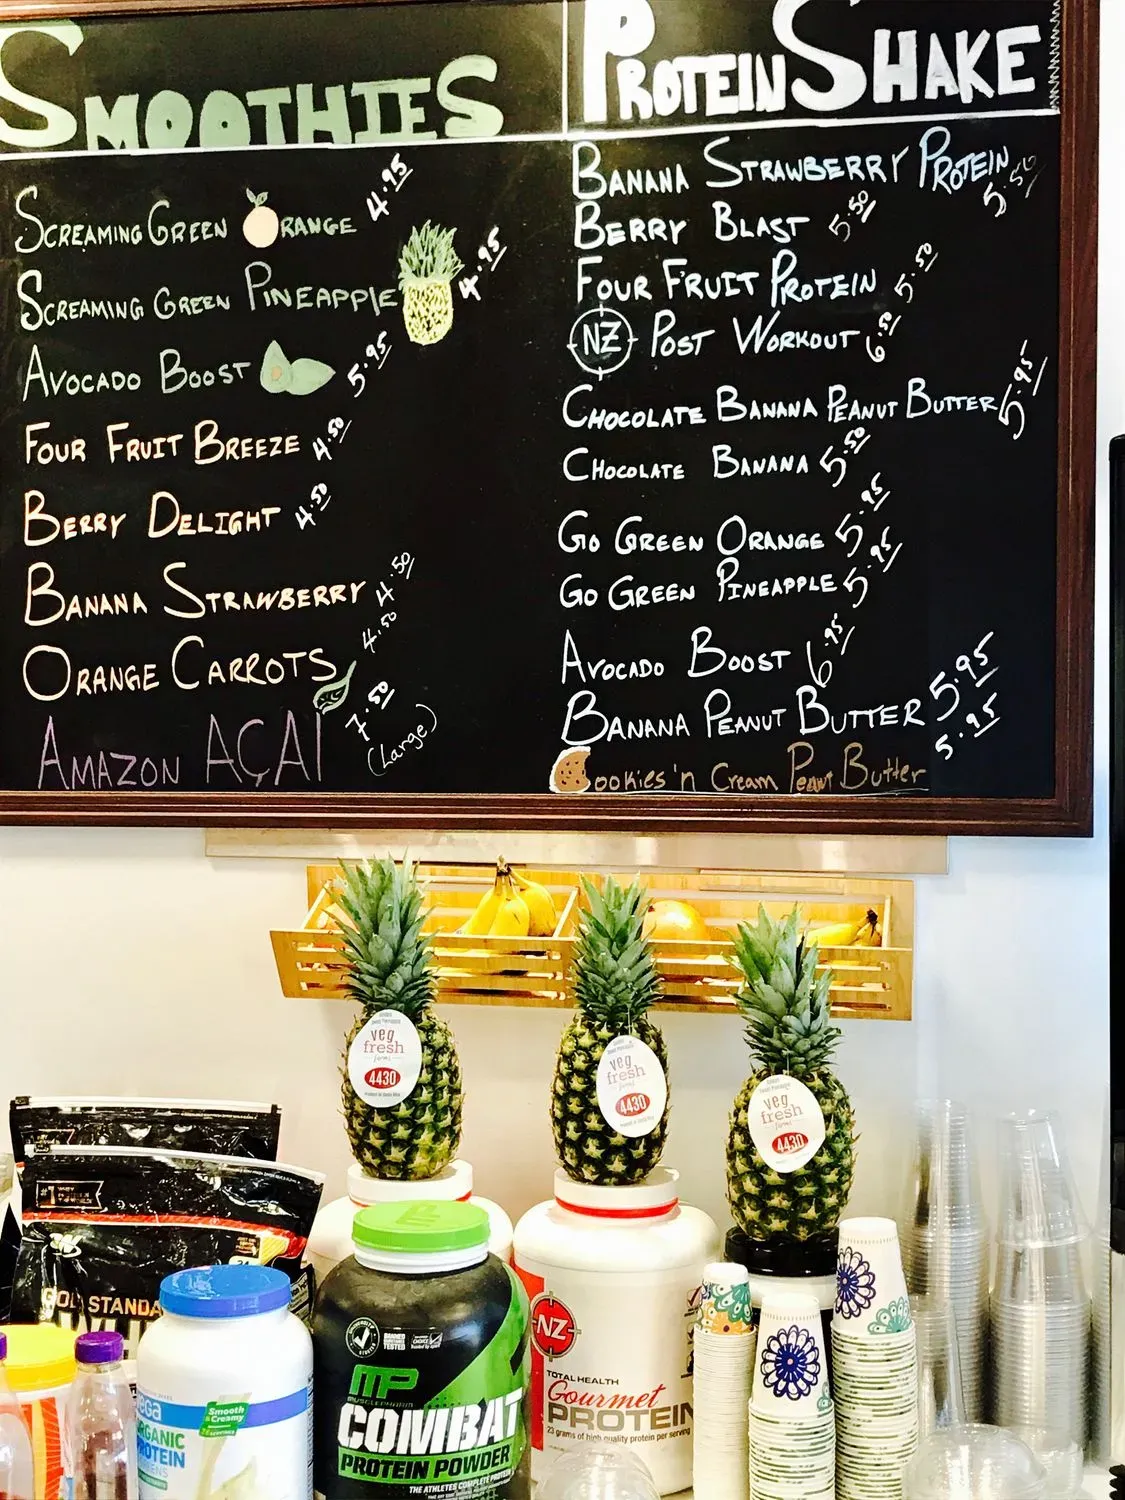 SMOOTHIES
SCREAMING GREEN ORANGE 4.95
SCREAMING GREEN PINEAPPLE 4.95
AVOCADO BOOST 5.95
FOUR FRUIT BREEZE 4.50
BERRY DELIGHT 4.50
BANANA STRAWBERRY 4.50
ORANGE CARROTS 4.50
AMAZON AÇAI 7.50
(Large)
PROTEIN SHAKE
BANANA STRAWBERRY PROTEIN 5.50
BERRY BLAST 5.50
FOUR FRUIT PROTEIN 5.50
NZ POST WORKOUT 6.50
CHOCOLATE BANANA PEANUT BUTTER 5.95
CHOCOLATE BANANA 5.50
GO GREEN ORANGE 5.95
GO GREEN PINEAPPLE 5.95
AVOCADO BOOST 6.95
BANANA PEANUT BUTTER 5.95
Cookies 'n Cream Peanut Butter 5.95
veg
fresh
farms
4430
veg
fresh
farms
4430
veg
fresh
farms
4430
GOLD STANDA
Smooth
& Creamy
ega
ORGANIC
PROTEIN
BANNED
SUBSTANCE
TESTED
MP
MUSCLEPHARM
COMBAT
PROTEIN POWDER
THE ATHLETES COMPLETE PROTEIN
NZ
TOTAL HEALTH
Gourmet
PROTEIN
23 grams of high quality protein per serving